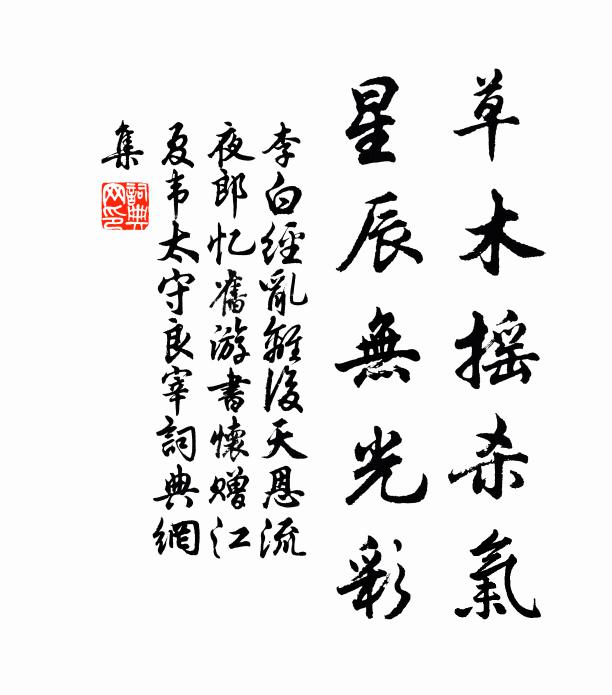 草木摇杀氣
星辰無光彩
李白經亂離後天恩流
夜郎忆舊游書懷贈江
夏韦太守良宰詞典網
集
詞典
网印